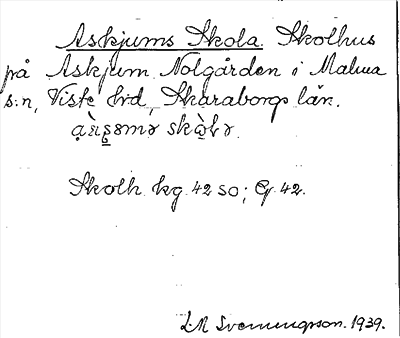 Askjums Skola. Skolhus
på Askjum Nolgården i Malma
s:n, Viste hrd, Skaraborgs län.
Skolh. kg. 42 SO; G. 42.
L.M Svenungsson. 1939.